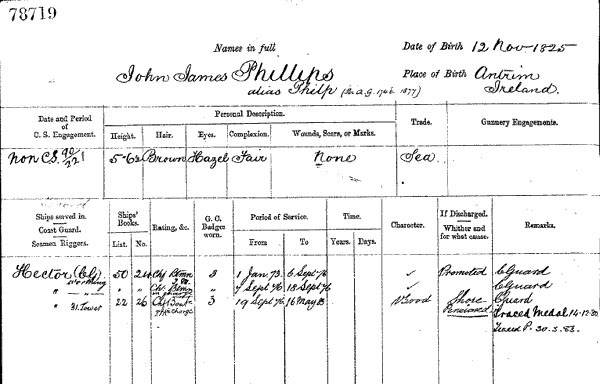 78719
Names in full
Date of Birth 12 Nov 1825
John James Phillips
Place of Birth Antrim
alias Philp
Ireland.
Date and Period of C. S. Engagement.
Personal Description.
Trade.
Gunnery Engagements.
Height. Hair. Eyes. Complexion. Wounds, Scars, or Marks.
Non C.S. 5-6½ Brown Hazel Fair None Sea
Ships served in.
Coast Guard.
Seamen Riggers.
Ships' Books.
Rating, &c.
G. C. Badges worn.
Period of Service.
Time.
Character.
If Discharged.
Whither and for what cause.
Remarks.
List. No. From To Years. Days.
Hector (Cg) 50 24 3 1 Jan 73 6 Sept 76 ✓ Promoted CGuard
Worthing
" " " " 7 Sept 76 18 Sept 76 ✓ CGuard
" 31. Tower 22 26 3 19 Sept 76 16 May 83 VGood Shore Pensioned CGuard
Traced Medal 14-12-80
Traced P. 30.5.83.